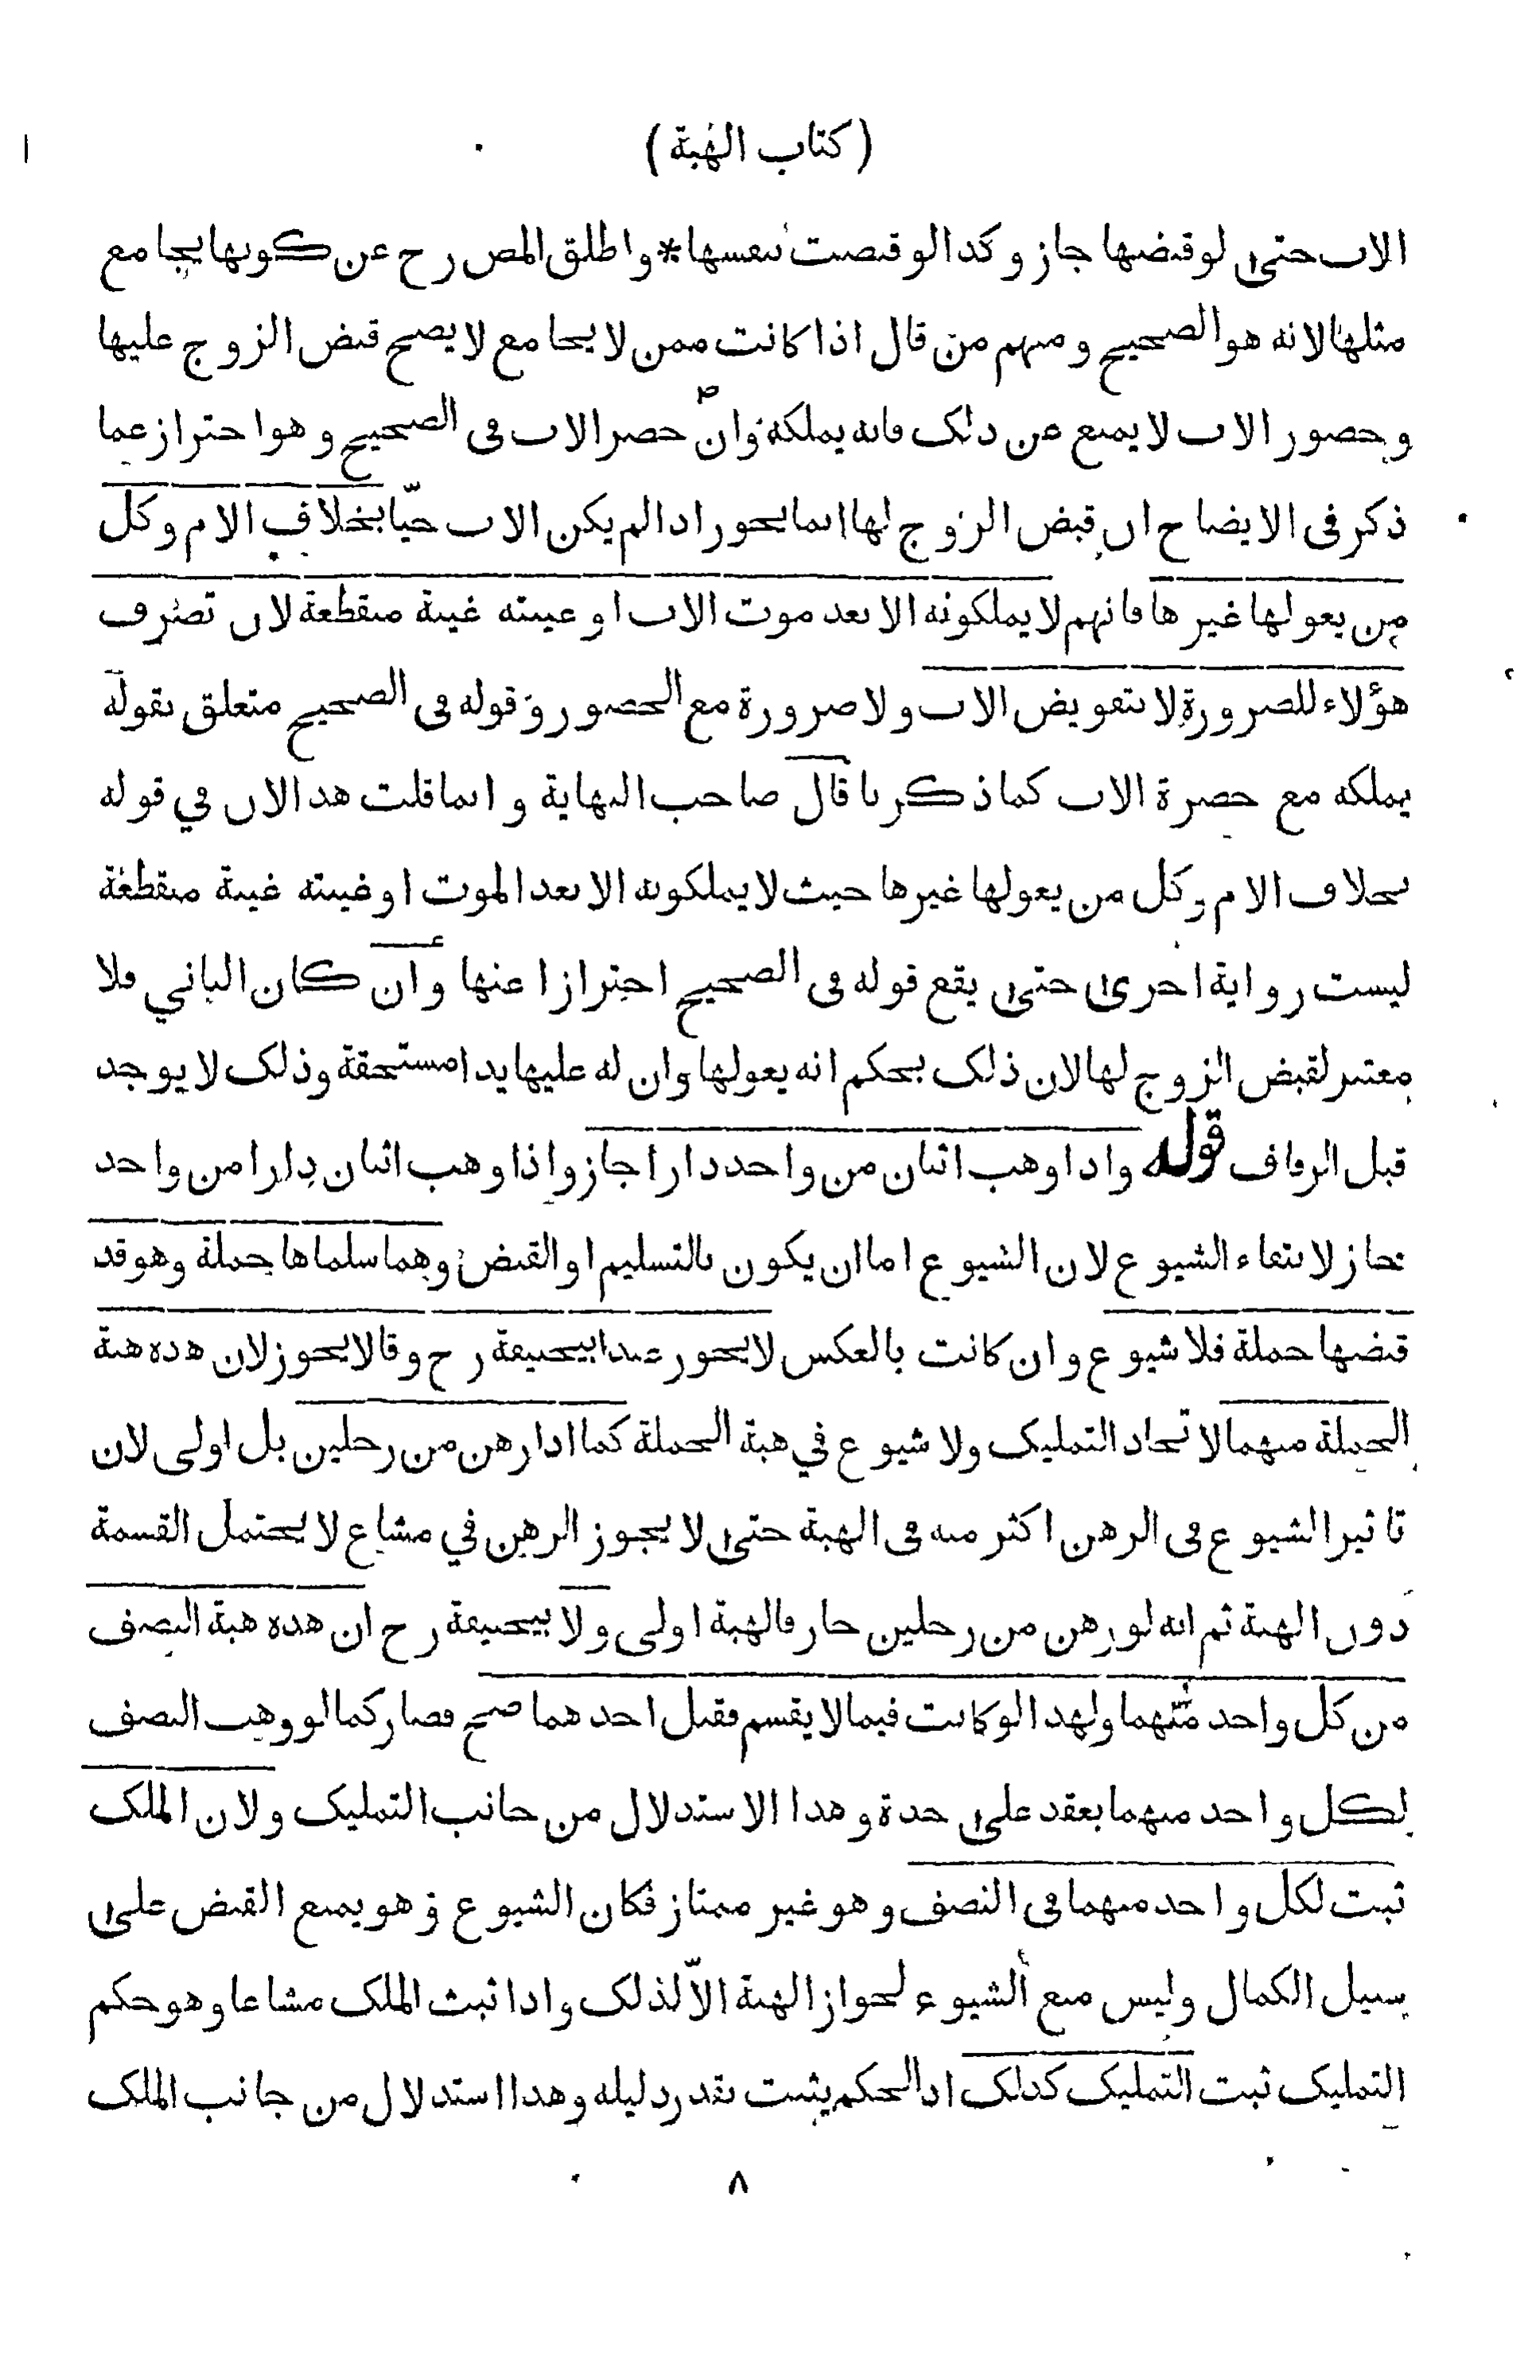 (كتاب الهبة)
الاب حتى لو قبضها جاز وكذا لو قبضت بنفسها * واطلق المص رح عن كونها يجامع
مثلها لانه هو الصحيح ومنهم من قال اذا كانت ممن لا يجامع لا يصح قبض الزوج عليها
وحضور الاب لا يمنع عن ذلك فانه يملكه وان حضر الاب في الصحيح وهو احتراز عما
ذكر في الايضاح ان قبض الزوج لها انما يجوز اذا لم يكن الاب حيّا بخلاف الام وكل
من يعولها غيرها فانهم لا يملكونه الا بعد موت الاب او غيبته غيبة منقطعة لان تصرف
هؤلاء للضرورة لا بتفويض الاب ولا ضرورة مع الحضور وقوله في الصحيح متعلق بقوله
يملكه مع حضرة الاب كما ذكرنا قال صاحب النهاية وانما قلت هذا لان في قوله
بخلاف الام وكل من يعولها غيرها حيث لا يملكونه الا بعد الموت او غيبته غيبة منقطعة
ليست رواية اخرى حتى يقع قوله في الصحيح احترازا عنها وان كان الباني فلا
معتبر لقبض الزوج لها لان ذلك بحكم انه يعولها وان له عليها يدا مستحقة وذلك لا يوجد
قبل الزفاف قوله واذا وهب اثنان من واحد دارا جاز واذا وهب اثنان دارا من واحد
جاز لانتفاء الشيوع لان الشيوع اما ان يكون بالتسليم او القبض وهما سلماها جملة وهو قد
قبضها جملة فلا شيوع وان كانت بالعكس لا يجوز عند ابيحنيفة رح وقالا يجوز لان هذه هبة
الجملة منهما لاتحاد التمليك ولا شيوع في هبة الجملة كما اذا رهن من رجلين بل اولى لان
تاثير الشيوع في الرهن اكثر منه في الهبة حتى لا يجوز الرهن في مشاع لا يحتمل القسمة
دون الهبة ثم انه لو رهن من رجلين جاز فالهبة اولى ولا بيحنيفة رح ان هذه هبة النصف
من كل واحد منهما ولهذا لو كانت فيما لا يقسم فقبل احدهما صح فصار كما لو وهب النصف
لكل واحد منهما بعقد على حدة وهذا الاستدلال من جانب التمليك ولان الملك
ثبت لكل واحد منهما في النصف وهو غير ممتاز فكان الشيوع وهو يمنع القبض على
سبيل الكمال وليس منع الشيوع لجواز الهبة الاّ لذلك واذا ثبت الملك مشاعا وهو حكم
التمليك ثبت التمليك كذلك اذ الحكم يثبت بقدر دليله وهذا استدلال من جانب الملك
٨